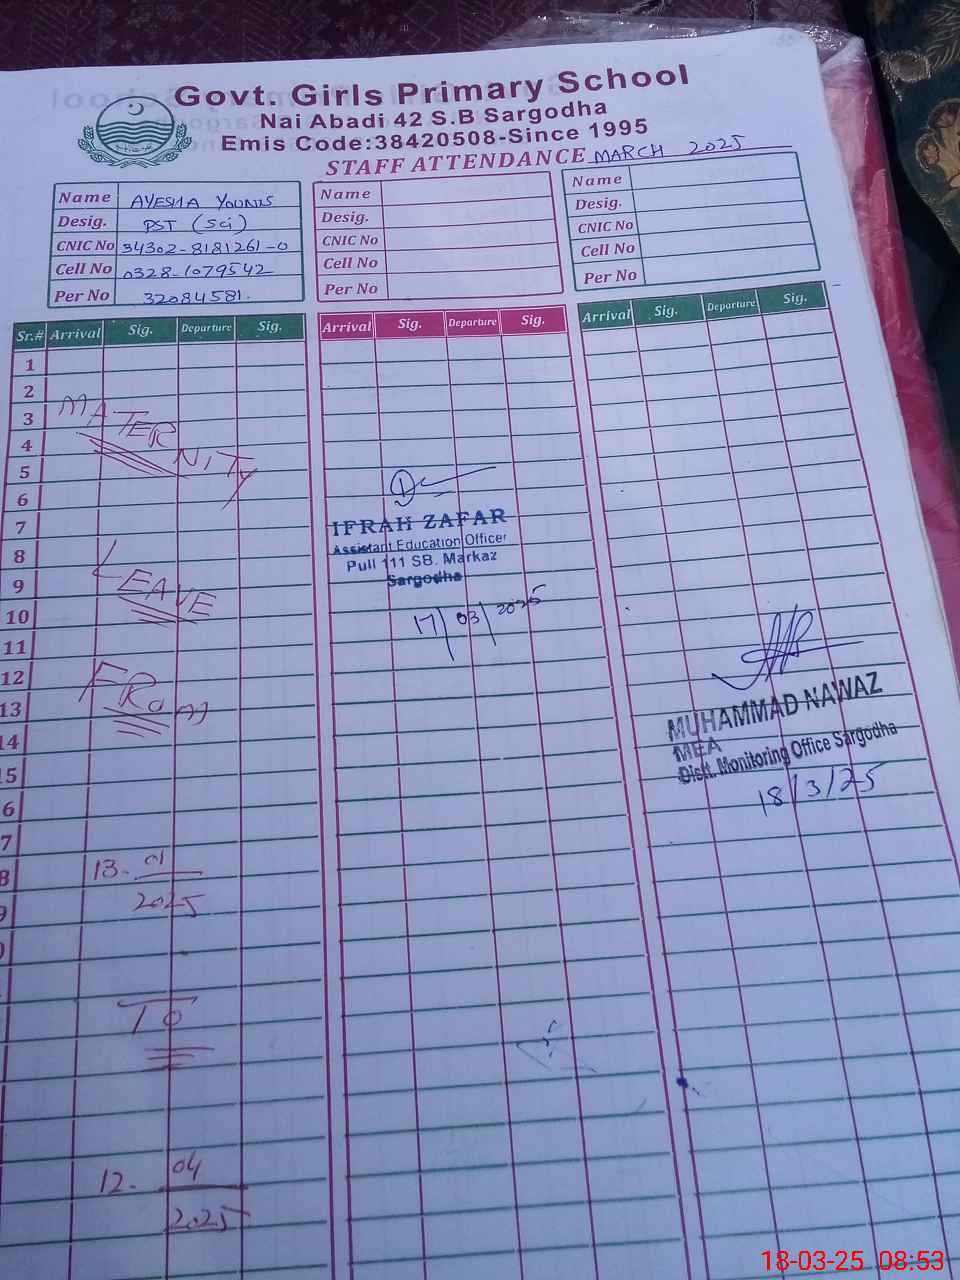 Govt. Girls Primary School
Nai Abadi 42 S.B Sargodha
Emis Code:38420508-Since 1995
STAFF ATTENDANCE MARCH 2025
Name AYESHA YOUNIS
Desig. PST (Sci)
CNIC No 34302-8181261-0
Cell No 0328-1079542
Per No 32084581.
Name
Desig.
CNIC No
Cell No
Per No
Name
Desig.
CNIC No
Cell No
Per No
Sr.# Arrival Sig. Departure Sig.
Arrival Sig. Departure Sig.
Arrival Sig. Departure Sig.
1
2
3
4
5
6
7
8
9
10
11
12
13
14
15
6
7
8
9
0
MATERNITY
LEAVE
FROM
13-01
2025
TO
12-04
2025
IFRAH ZAFAR
Assistant Education Officer
Pull 111 SB. Markaz
Sargodha
17/03/2025
MUHAMMAD NAWAZ
MEA
Distt. Monitoring Office Sargodha
18/3/25
18-03-25 08:53